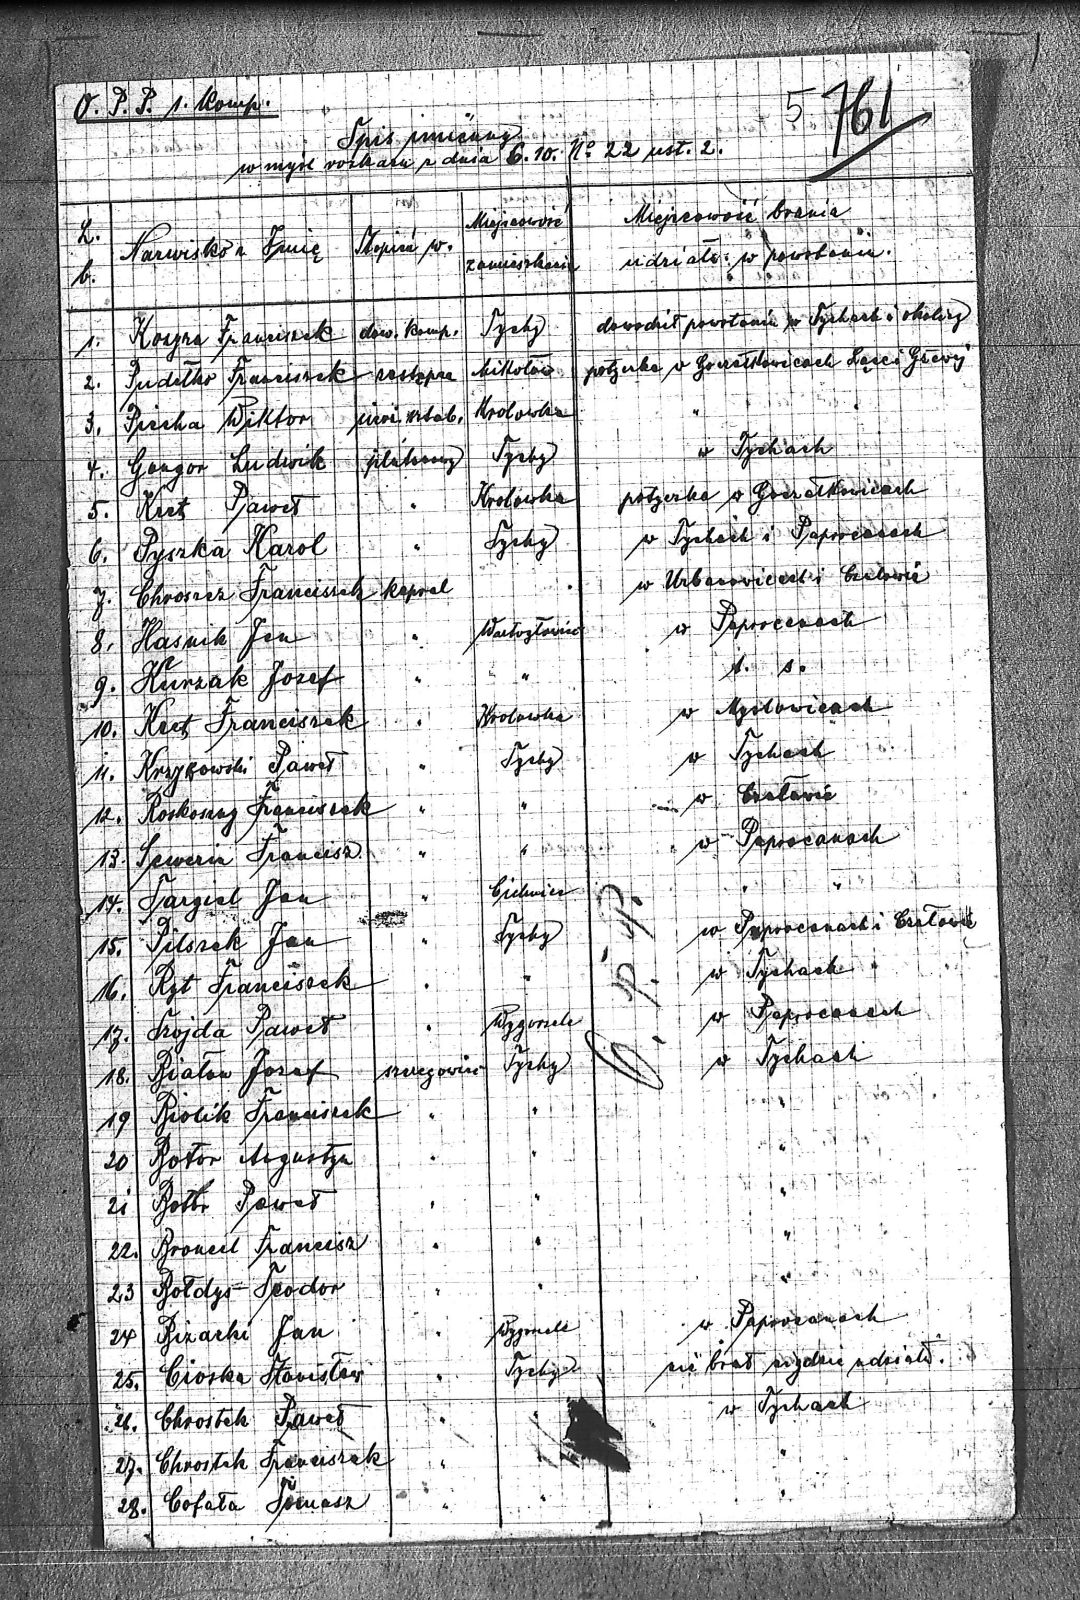 O. P. P. 1. Komp.
5 761
Spis imienny
w myśl rozkazu z dnia 6.10. No 22 ust. 2.
L. b. Nazwisko i Imię Stopień w. Miejscowość zamieszkania Miejscowość brania udziału w powstaniu.
1. Kosyra Franciszek dow. komp. Tychy dowodził powstanie w Tychach i okolicy
2. Pudełko Franciszek zastępca Mikołów potyczka w Goczałkowicach
3. Piecha Wiktor Krolowka "
4. Gongor Ludwik plutonowy Tychy w Tychach
5. Kret Paweł " Krolowka potyczka w Goczałkowicach
6. Pyszka Karol " Tychy w Tychach i Paprocanach
7. Chroszcz Franciszek kapral " w Urbanowicach i Czułowie
8. Hasnik Jan " w Paprocanach
9. Kurzak Jozef " " t. s.
10. Kret Franciszek " Krolowka w Mysłowicach
11. Krzykowski Paweł " Tychy w Tychach
12. Roskoszny Franciszek " " w Czułowie
13. Sewerin Francisz " " w Paprocanach
14. Targiel Jan " Cielmice " "
15. Pilszek Jan " Tychy w Paprocanach i Czułowie
16. Ryt Franciszek " " w Tychach
17. Szojda Paweł " Wygorzele w Paprocanach
18. Białon Jozef szeregowiec Tychy w Tychach
19 Biolik Franciszek " " "
20 Botor Augustyn " " "
21 Botor Paweł " " "
22. Broncel Francisz " " "
23 Bołdys Teodor " " "
24 Bizacki Jan " Wygorzele w Paprocanach
25. Cioska Stanisław " Tychy nie brał nigdzie udziału.
26. Chrostek Paweł " " w Tychach
27. Chrostek Franciszek " "
28. Cofała Tomasz " " "
O. p. p.